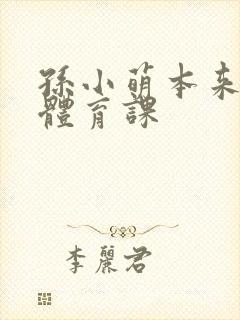 孫小萌本来
體育課
李麗君